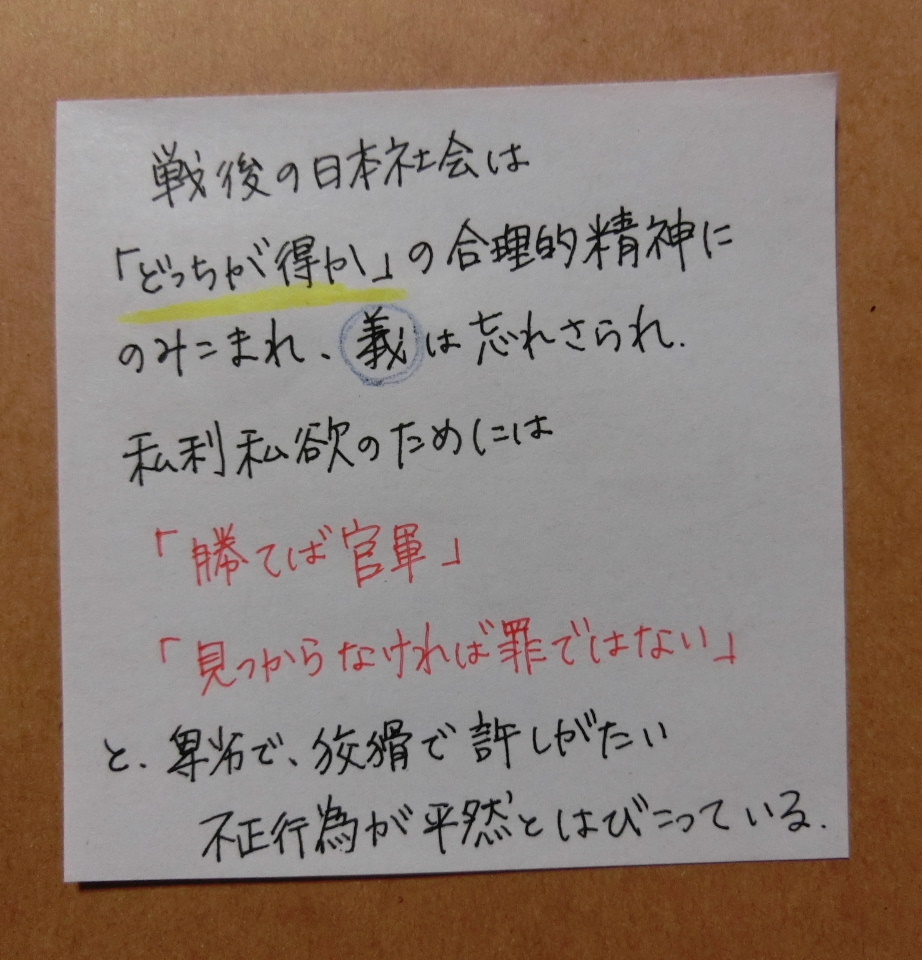 戦後の日本社会は
「どっちが得か」の合理的精神に
のみこまれ、義は忘れさられ.
私利私欲のためには
「勝てば官軍」
「見つからなければ罪ではない」
と.卑劣で、狡猾で許しがたい
不正行為が平然とはびこっている.